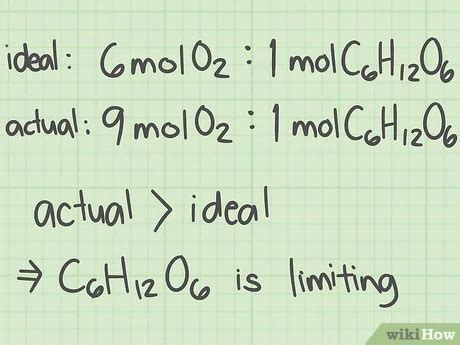 ideal: 6 mol O₂ : 1 mol C₆H₁₂O₆
actual: 9 mol O₂ : 1 mol C₆H₁₂O₆
actual > ideal
⇒ C₆H₁₂O₆ is limiting
wikiHow